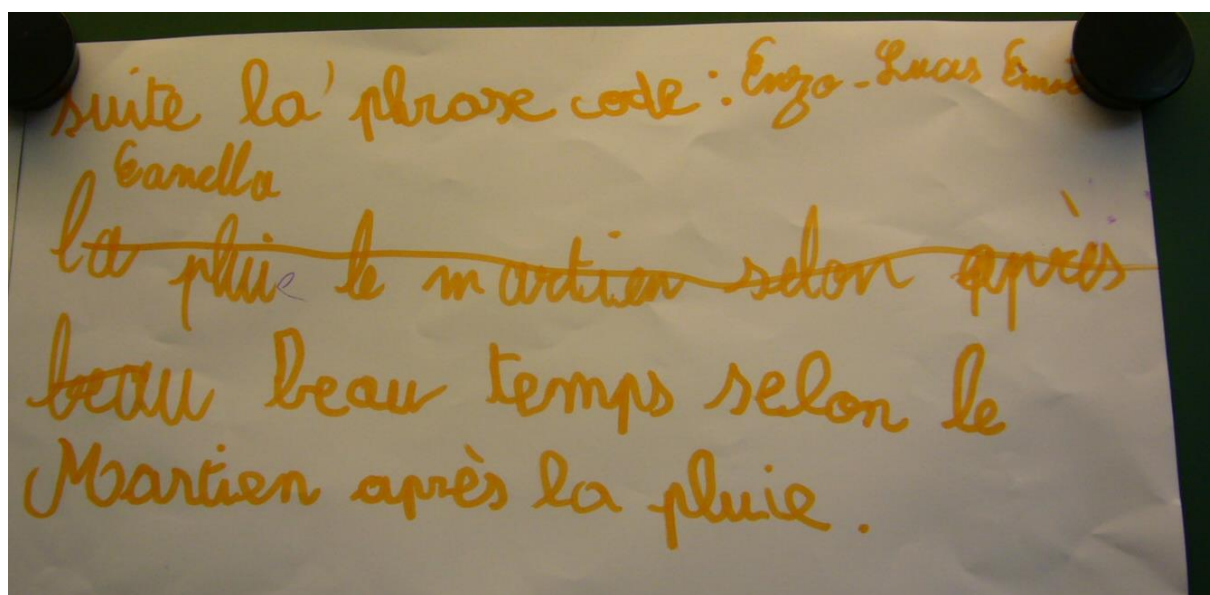 suite la phrase code : Enzo - Lucas
Canella
la pluie le martien selon après
beau Beau temps selon le
Martien après la pluie.